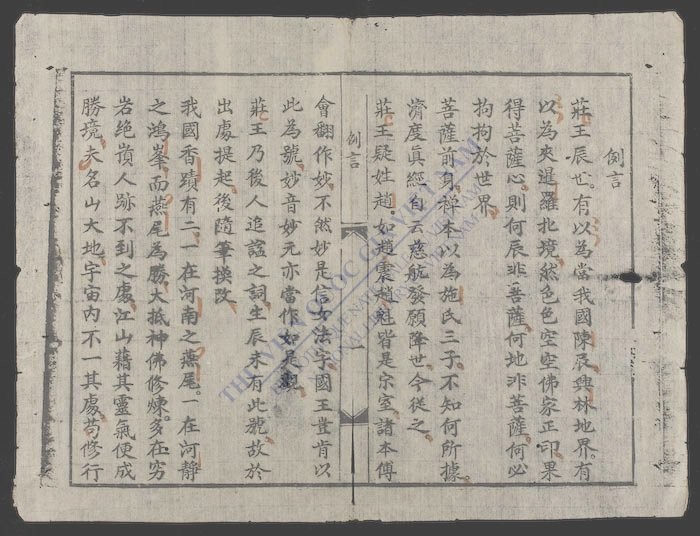 例言
莊王辰也有以為當我國陳辰興林地界有
以為夾暹羅北境然色色空空佛家正印果
得菩薩心則何辰非菩薩何地非菩薩何必
拘拘於世界
菩薩前身禅本以為施氏三子不知何所據
濟度眞經自云慈航發願降世今從之
莊王疑姓趙如趙震趙魁皆是宗室諸本傳
例言
會翻作妙不然妙是信女法字國王豈肯以
此為號妙音妙元亦當作如是觀
莊王乃後人追諡之詞生辰未有此號故於
出處提起後隨筆換改
我國香蹟有二一在河南之燕尾一在河靜
之鴻峯而燕尾為勝大抵神佛修煉多在穷
岩絶嵿人跡不到之處江山藉其靈氣便成
勝境夫名山大地宇宙内不一其處苟修行